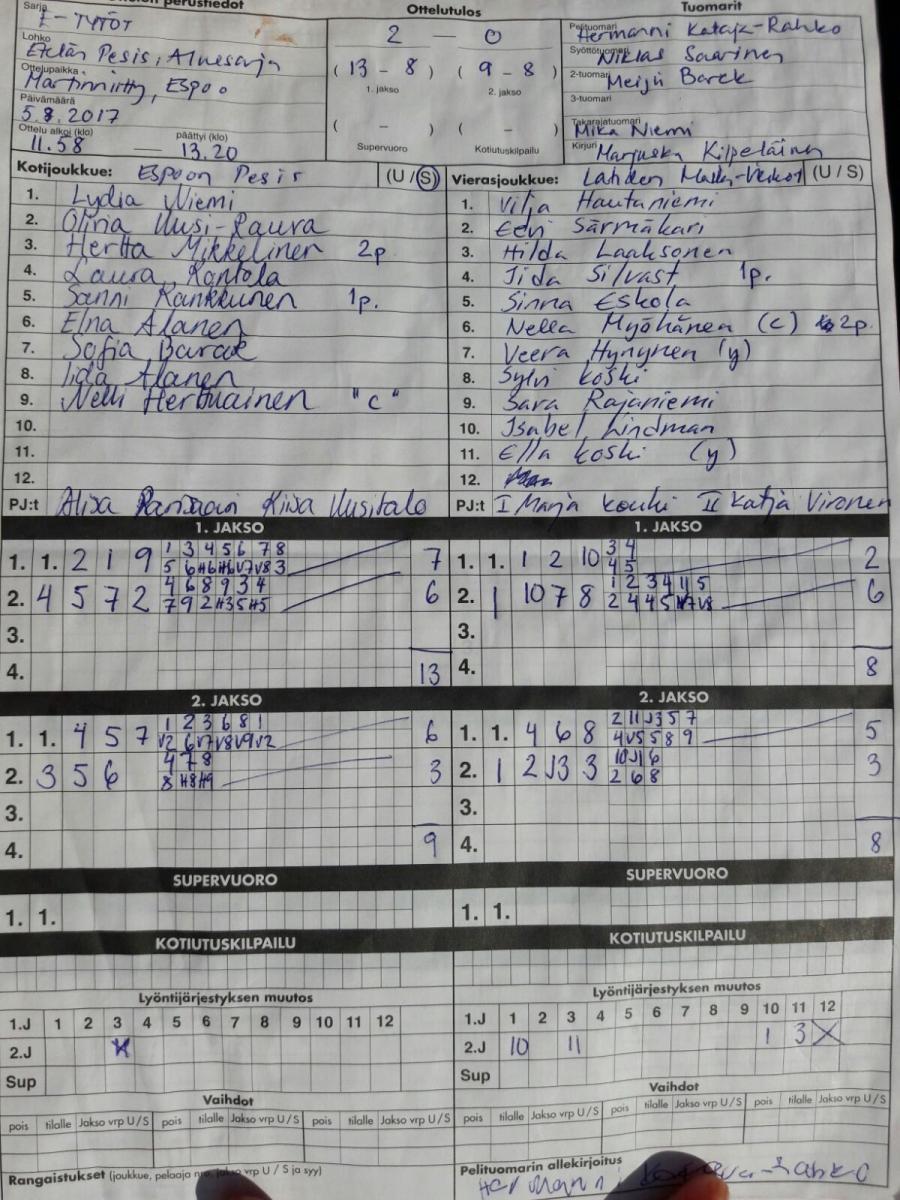 Ottelun perustiedot Ottelutulos Tuomarit
Sarja E-TYTÖT
Lohko Etelän Pesis, Aluesarja
Ottelupaikka Martinniitty, Espoo
Päivämäärä 5.8.2017
Ottelu alkoi (klo) päättyi (klo)
11.58 — 13.20
2 — 0
( 13 - 8 ) ( 9 - 8 )
1. jakso 2. jakso
( - ) ( - )
Supervuoro Kotiutuskilpailu
Pelituomari Hermanni Kataja-Rahko
Syöttötuomari Niklas Saarinen
2-tuomari Meiju Barck
3-tuomari
Takarajatuomari Mika Niemi
Kirjuri Marjuska Kilpeläinen
Kotijoukkue: Espoon Pesis (U / S)
1. Lydia Niemi
2. Olivia Uusi-Raura
3. Hertta Mikkelinen 2p
4. Laura Kantola
5. Sanni Kankkunen 1p.
6. Elna Alanen
7. Sofia Barck
8. Iida Alanen
9. Nelli Hertuainen "c"
10.
11.
12.
PJ:t Alisa Kiisa Uusitalo
Vierasjoukkue: Lahden Maila-Veikot (U / S)
1. Vilja Hautaniemi
2. Eevi Särmäkari
3. Hilda Laaksonen
4. Iida Silvast 1p.
5. Sinna Eskola
6. Nella Myöhänen (c) 2p.
7. Veera Hynynen (y)
8. Sylvi Koski
9. Sara Rajaniemi
10. Isabel Lindman
11. Ella Koski (y)
12.
PJ:t I Marja Kouki II Katja Vironen
1. JAKSO
1. 1. 2 1 9 1 3 4 5 6 7 8 7
2. 4 5 7 2 4 6 8 9 3 4 6
3.
4. 13
1. JAKSO
1. 1. 1 2 10 3 4 2
4 5
2. 1 10 7 8 1 2 3 4 11 5 6
3.
4. 8
2. JAKSO
1. 1. 4 5 7 1 2 3 6 8 1 6
V2 6 V7 V8 V9 V2
2. 3 5 6 4 7 8 3
8 H8 H9
3.
4. 9
2. JAKSO
1. 1. 4 6 8 2 11 J3 5 7 5
4 V5 5 8 9
2. 1 2 J3 3 10 J1 6 3
2 6 8
3.
4. 8
SUPERVUORO
1. 1.
SUPERVUORO
1. 1.
KOTIUTUSKILPAILU
KOTIUTUSKILPAILU
Lyöntijärjestyksen muutos
1.J 1 2 3 4 5 6 7 8 9 10 11 12
2.J
Sup
Lyöntijärjestyksen muutos
1.J 1 2 3 4 5 6 7 8 9 10 11 12
2.J 10 11 1 3 X
Sup
Vaihdot
pois tilalle Jakso vrp U / S pois tilalle Jakso vrp U / S pois tilalle Jakso vrp U / S
Vaihdot
pois tilalle Jakso vrp U / S pois tilalle Jakso vrp U / S pois tilalle Jakso vrp U / S
Rangaistukset (joukkue, pelaaja nro, jakso vrp U / S ja syy)
Pelituomarin allekirjoitus
Hermanni Kataja-Rahko